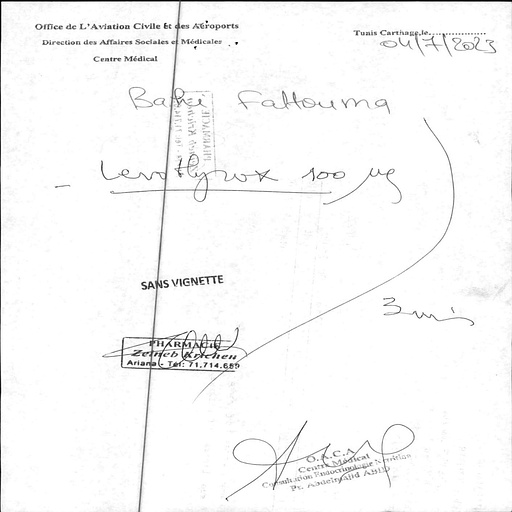 Office de L'Aviation Civile et des Aéroports
Direction des Affaires Sociales et Médicales
Centre Médical
Tunis Carthage,le
04/7/2023
Fattouma
- Levothyrox 100 µg
SANS VIGNETTE
3 mois
PHARMACIE
Zeineb Krichen
Ariana - Tél: 71.714.659
O.A.C.A
Centre Médical
Consultation Endocrinologie
Pr. Abdelmajid